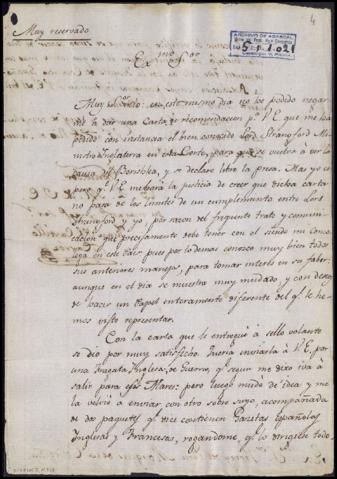 4
Muy reservado
ARCHIVO DE
5-1-1.021
Exmo. Sor.
Muy Sr. mio: en este mismo dia no he podido negar
á dar una Carta de recomendacion pa. V.E. que me ha
pedido con instancia el bien conocido Lord Strangford Mi
nistro Inglaterra en esta Corte, para que se vuelva á ver la
causa del y se declare libre la presa. Mas yo es
pero qe. V.E. me hará la justicia de creer que dicha carta
no pasa de los limites de un cumplimiento entre Lord
Strangford y yo, por razon del frequente trato y comuni
cacion que precisamente debo tener con el siendo mi Co
lega en este Pais; pues por lo demas conozco muy bien todos
sus anteriores manejos, para tomar interés en su favor:
aunque en el dia se muestra muy mudado, y con deseos
de hacer un Papel enteramente diferente del qe. le he
mos visto representar.
Con la carta que le entregué á sello volante
se dio por muy satisfecho. Queria enviarla á V.E. por
una Fragata Inglesa de Guerra, qe. segun me dixo iva á
salir para esos Mares: pero luego mudó de idea y me
la volvió á enviar con otro sobre suyo, acompañada
de dos paquetes qe. dice contienen Gazetas Españolas
Inglesas y Francesas, rogandome, qe. lo dirigiese todo